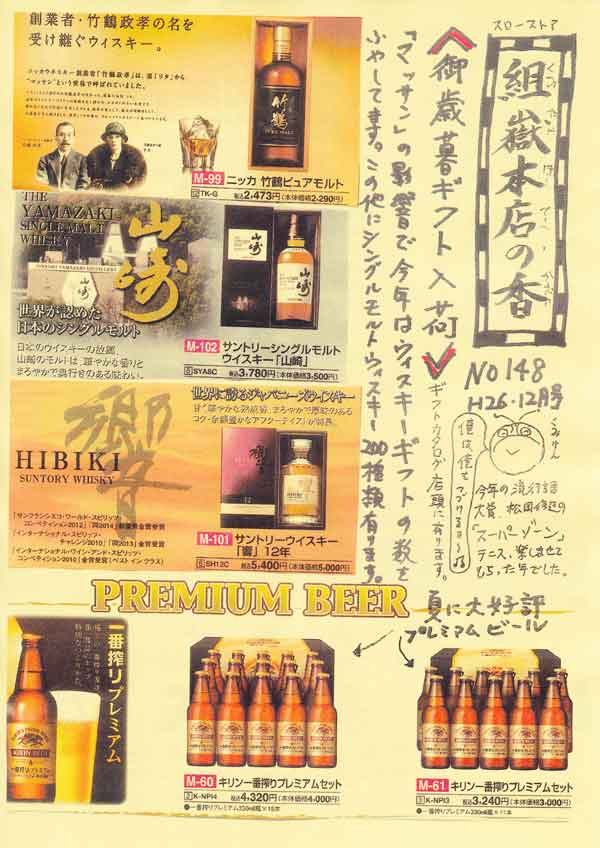 スローストア
組嶽本店の香
NO148
H26.12月号
くみやん
僕は、僕を
つづける
今年の流行語
大賞、松岡修造の
「スーパーゾーン」
テニス、楽しませて
もらった年でした。
御歳暮ギフト入荷
ギフトカタログ店頭に有ります。
「マッサン」の影響で今年はウィスキーギフトの数を
ふやしてます。この他にシングルモルトウィスキー200種類有ります。
創業者・竹鶴政孝の名を
受け継ぐウイスキー。
ニッカウヰスキー創業者「竹鶴政孝」は、妻「リタ」から
“マッサン”という愛称で呼ばれていました。
竹鶴
PURE MALT
M-99 ニッカ 竹鶴ピュアモルト
TK-G 税込2,473円(本体価格2,290円)
THE
YAMAZAKI
SINGLE MALT
WHISKY
山崎
SUNTORY YAMAZAKI DISTILLERY
世界が認めた
日本のシングルモルト
日本のウイスキーの故郷、
山崎のモルトは、華やかな香りと
まろやかで奥行きのある味わい。
M-102 サントリーシングルモルト
ウイスキー「山崎」
SYASC 税込3,780円(本体価格3,500円)
世界に誇るジャパニーズウイスキー
甘く華やかな熟成香、まろやかで厚味のある
コク・余韻豊かなアフターテイストが特長。
響
HIBIKI
SUNTORY WHISKY
「サンフランシスコ・ワールド・スピリッツ・
コンペティション2012」「同2014」最優秀金賞受賞
「インターナショナル・スピリッツ・
チャレンジ2010」「同2013」金賞受賞
「インターナショナル・ワイン・アンド・スピリッツ・
コンペティション2010」金賞受賞(ベスト イン クラス)
M-101 サントリーウイスキー
「響」12年
SH12C 税込5,400円(本体価格5,000円)
PREMIUM BEER
夏に大好評
プレミアムビール
一番搾りプレミアム
KIRIN BEER
M-60 キリン一番搾りプレミアムセット
K-NPI4 税込4,320円(本体価格4,000円)
●一番搾りプレミアム330ml瓶×15本
M-61 キリン一番搾りプレミアムセット
K-NPI3 税込3,240円(本体価格3,000円)
●一番搾りプレミアム330ml瓶×11本